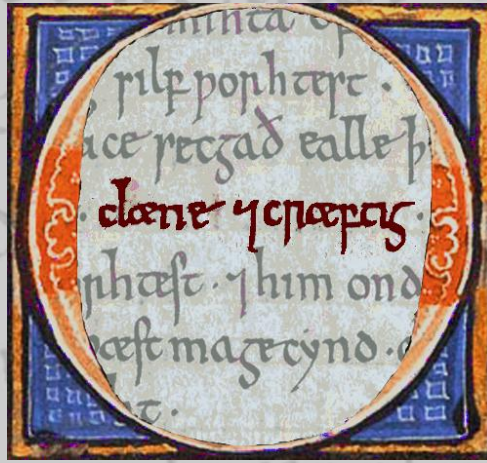 silf ƿorhtest ·
secgað ealle þ
clæne ⁊ cræftig ·
rhtest · ⁊ him ond
æstma gecynd ·